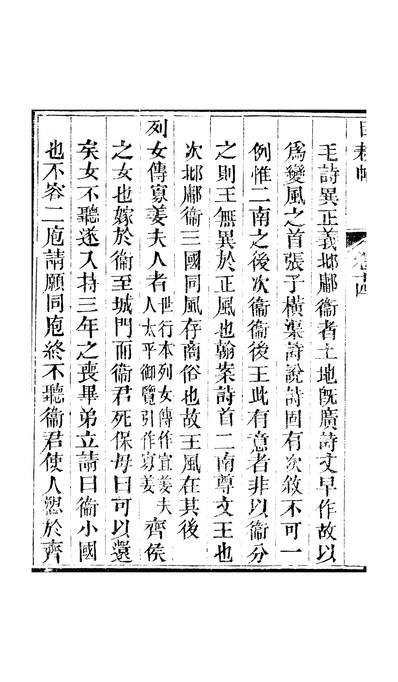 毛詩異正義邶鄘衞者土地旣廣詩文早作故以
爲變風之首張子橫渠詩說詩固有次敘不可一
例惟二南之後次衞衞後王此有意者非以衞分
之則王無異於正風也翰案詩首二南尊文王也
次邶鄘衞三國同風存商俗也故王風在其後
列女傳寡姜夫人者世行本列女傳作宜姜夫人太平御覽引作寡姜齊侯
之女也嫁於衞至城門而衞君死保母曰可以還
矣女不聽遂入持三年之喪畢弟立請曰衞小國
也不容二庖請願同庖終不聽衞君使人愬於齊